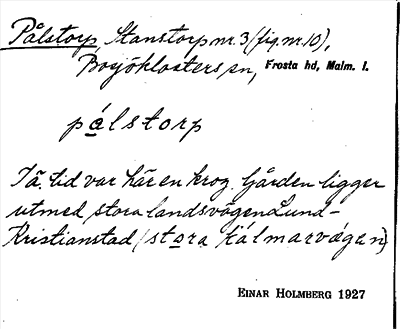 Pålstorp, Stanstorp nr. 3 (fig. nr. 10),
Bosjöklosters sn, Frosta hd, Malm. l.
pálstorp
I ä. tid var här en krog. Gården ligger
utmed stora landsvägen Lund-
Kristianstad (stora kálmarvägen)
EINAR HOLMBERG 1927